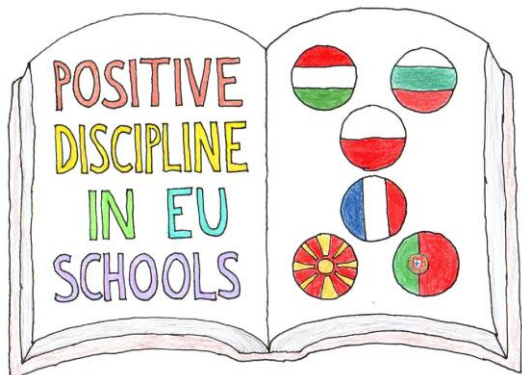 POSITIVE
DISCIPLINE
IN EU
SCHOOLS